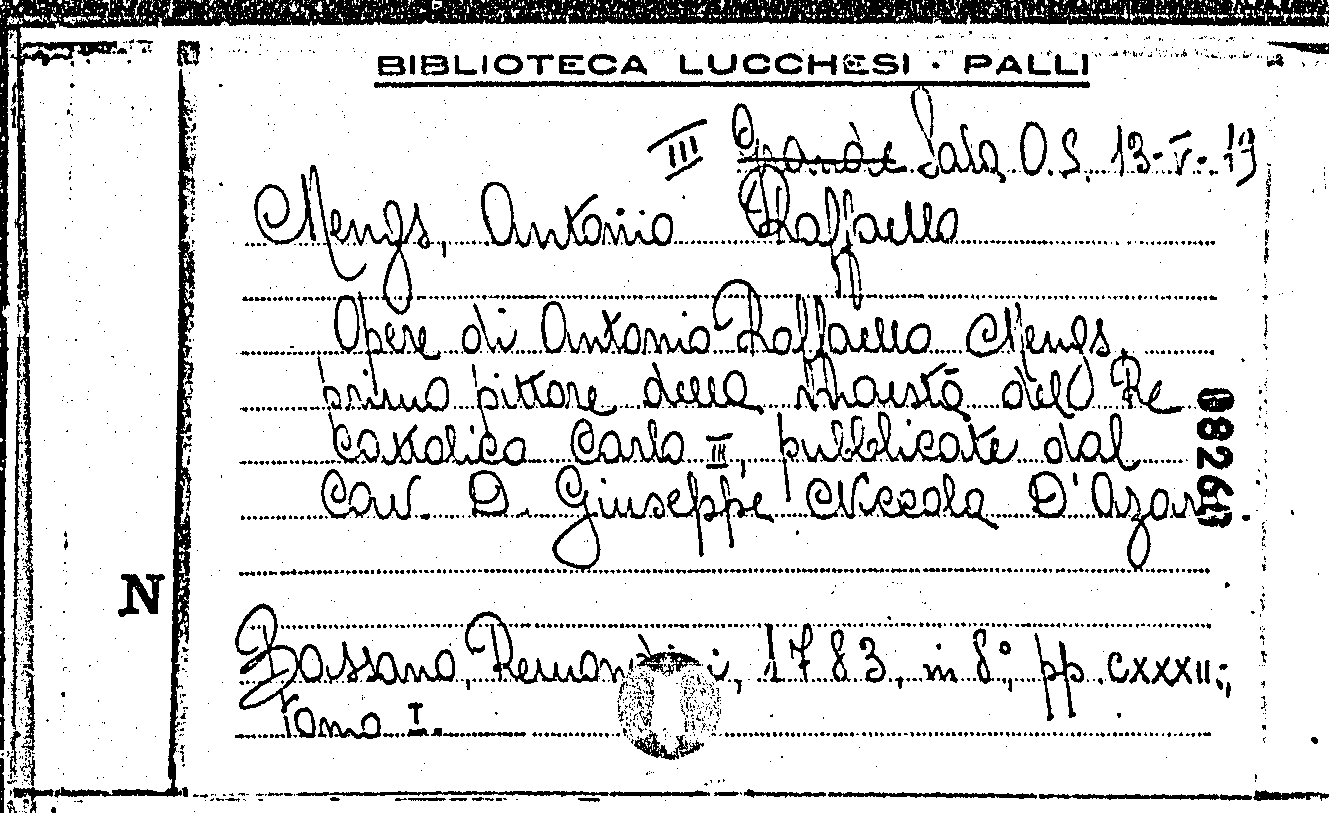 BIBLIOTECA LUCCHESI · PALLI
III Grande Sala O.S. 13-V-19
Mengs, Antonio Raffaello
Opere di Antonio Raffaello Mengs,
primo pittore della Maestà del Re
Cattolico Carlo III, pubblicate dal
Cav. D. Giuseppe Niccola D'Azara.
08260
N
Bassano, Remondini, 1783, in 8°, pp. CXXXII;
Tomo I.